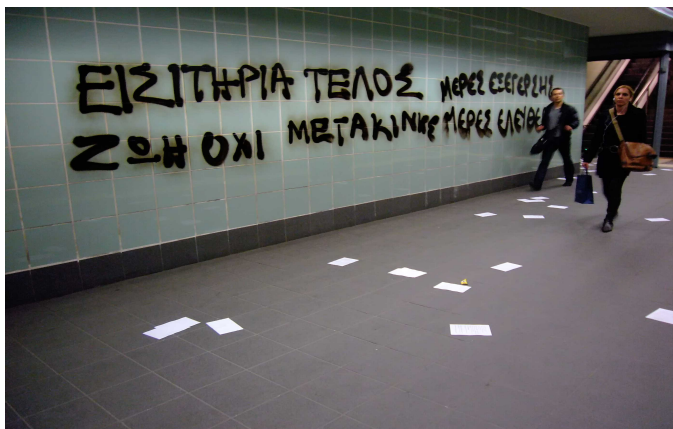 ΕΙΣΙΤΗΡΙΑ ΤΕΛΟΣ ΜΕΡΕΣ ΕΞΕΓΕΡΣΗΣ
ΖΩΗ ΟΧΙ ΜΕΤΑΚΙΝΗΣ ΜΕΡΕΣ